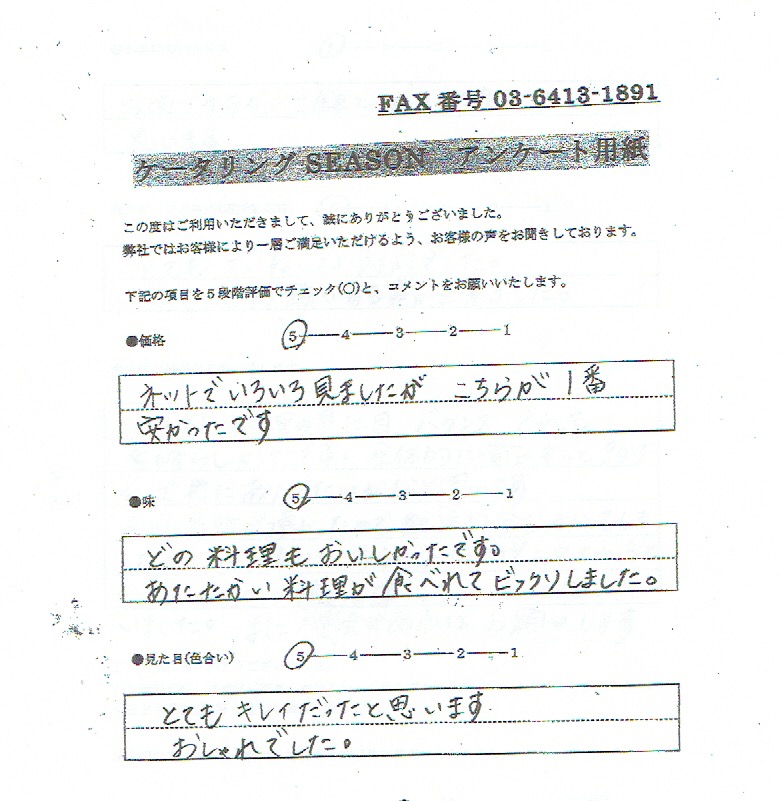 FAX 番号 03-6413-1891
ケータリング SEASON アンケート用紙
この度はご利用いただきまして、誠にありがとうございました。
弊社ではお客様により一層ご満足いただけるよう、お客様の声をお聞きしております。
下記の項目を5段階評価でチェック(○)と、コメントをお願いいたします。
●価格 5――4――3――2――1
ネットでいろいろ見ましたが こちらが 1番
安かったです
●味 5――4――3――2――1
どの 料理も おいしかったです。
あたたかい 料理が 食べれて ビックリしました。
●見た目(色合い) 5――4――3――2――1
とても キレイだったと思います
おしゃれでした。